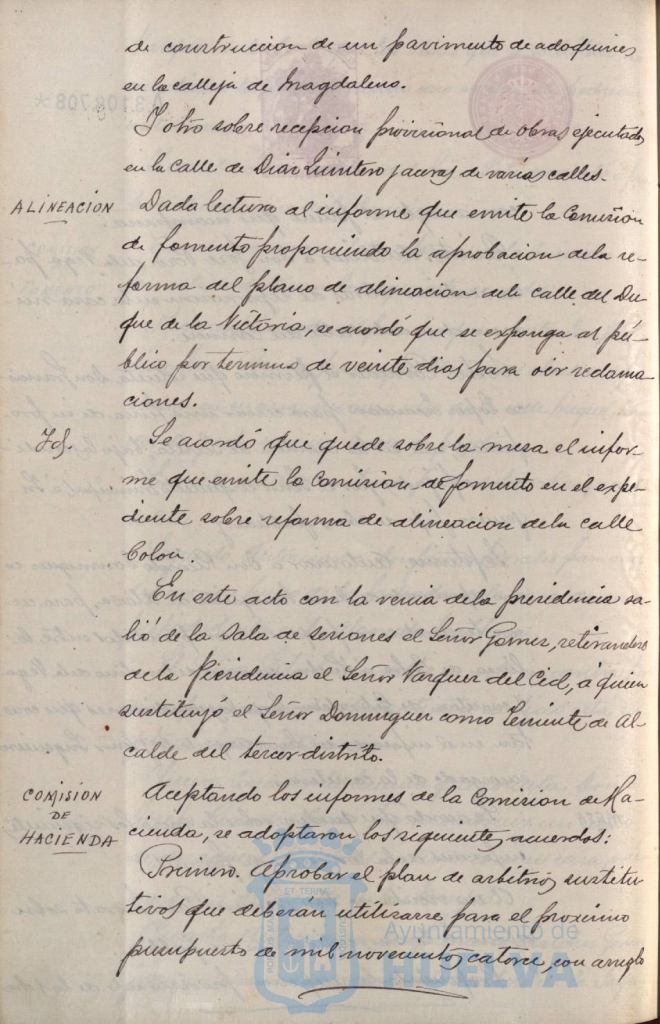 de construccion de un pavimento de adoquines
en la calleja de Magdalena.
Y otro sobre recepcion provisional de obras ejecutadas
en la calle de Diaz Quintero y aceras de varias calles.
ALINEACIÓN
Dada lectura al informe que emite la Comision
de fomento proponiendo la aprobacion de la re-
forma del plano de alineacion de la calle del Du-
que de la Victoria, se acordó que se exponga al pú-
blico por termino de veinte dias para oir reclama
ciones.
Id.
Se acordó que quede sobre la mesa el infor-
me que emite la Comision de fomento en el expe-
diente sobre reforma de alineacion de la calle
Colon.
En este acto con la venia de la presidencia sa-
lió de la Sala de sesiones el Señor Gomez, retirandose
de la Presidencia el Señor Vazquez del Cid, á quien
sustituyó el Señor Dominguez como Teniente de Al-
calde del tercer distrito.
COMISION
DE
HACIENDA
Aceptando los informes de la Comision de Ha-
cienda, se adoptaron los siguientes acuerdos:
Primero. Aprobar el plan de arbitrios sustitu-
tivos que deberán utilizarse para el proximo
presupuesto de mil novecientos catorce, con arreglo
Ayuntamiento de
HUELVA